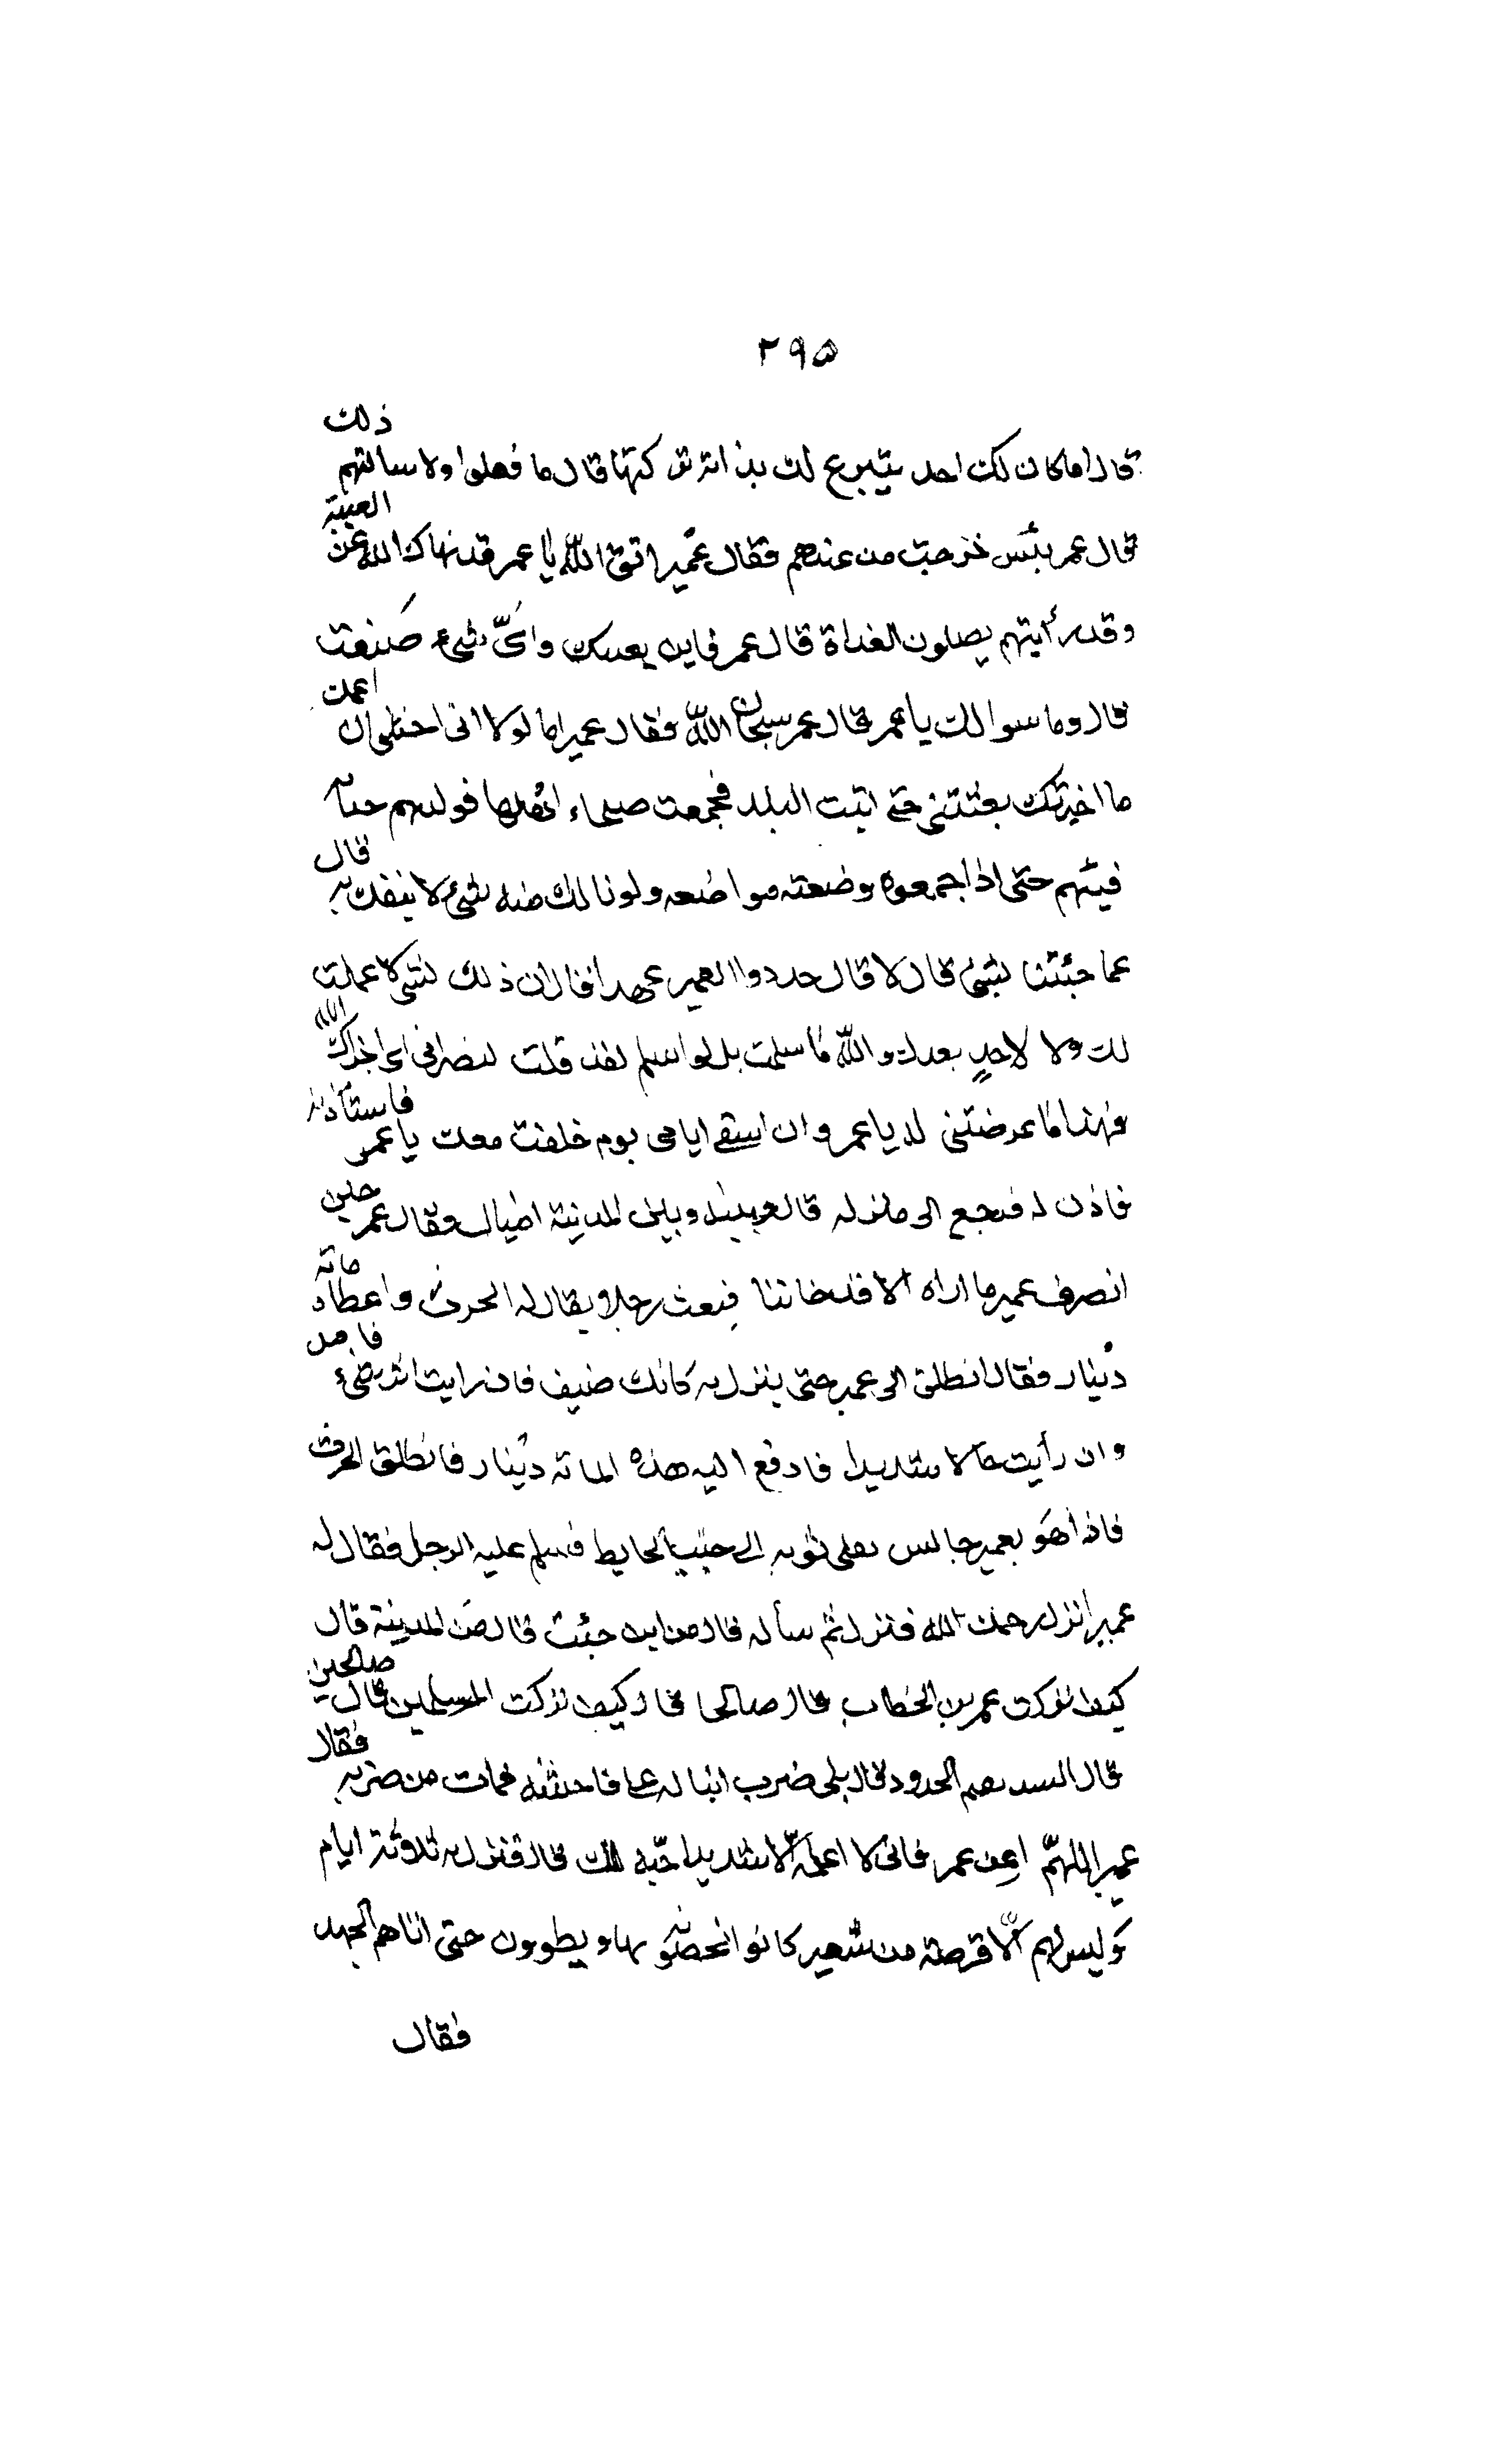 ٢٩٥
قال اما كان لك احد يتبرع لك بدابة تركبها قال ما فعلوا ولا سالتهم ذلك
قال عمر بئس خرجت من عندهم فقال عمير اتق الله يا عمر قد نهاك الله عن الغيبة
وقد رأيتهم يصلون الغداة قال عمر فاين بعثتك وايّ شيء صنعت
قال وما سوالك يا عمر قال عمر سبحان الله فقال عمير اما لولا انى اخشى ان اعمك
ما اخبرتك بعثتنى حتى اتيت البلد فجمعت صلحاء اهلها فوليتهم جباية
فيئهم حتى اذا جمعوه وضعته مواضعه ولو نالك منه شىء لاتيتك به قال
فما جئتنا بشىء قال لا قال جددوا لعمير عهدا فقال ان ذلك لشىء لا عملت
لك ولا لاحدٍ بعدك والله ما سلمت بل لم اسلم لقد قلت لنصرانى اى اخزاك الله
فهذا ما عرضتنى له يا عمر وان اشقى ايامى يوم خلفت معك يا عمر فاستأذنه
فاذن له فرجع الى منزله قال وبينه وبين المدينة اميال فقال عمر حين
انصرف عمير ما اراه الا قد خاننا فبعث رجلا يقال له الحرث واعطاه مائة
دينار فقال انطلق الى عمير حتى ينزل به كانك ضيف فان رايت اثر شىء فاقبل
وان رأيت حالا شديدا فادفع اليه هذه المائة دينار فانطلق الحرث
فاذا هو بعمير جالس يفلى ثوبه الى جنب الحايط فسلم عليه الرجل فقال له
عمير انزل رحمك الله فنزل ثم سأله فقال من اين جئت قال من المدينة قال
كيف تركت عمر بن الخطاب قال صالحا قال كيف تركت المسلمين قال صالحين
قال اليس يقيم الحدود قال بلى ضرب ابنا له على فاحشة فمات من ضربه فقال
عمير اللهمّ اعن عمر فانى لا اعلمه الّا شديدا حبّه لك قال فنزل به ثلاثة ايام
وليس لهم الّا قرصة من شعير كانوا يخصونه بها ويطوون حتى اتاهم الجهد
فقال